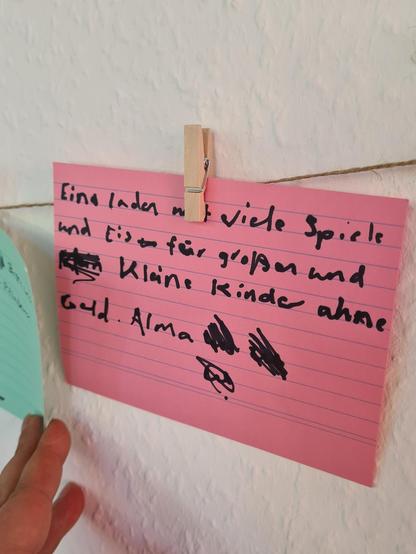 Eine laden mit viele Spiele
und Eis für großen und
Kleine Kinder ahme
Geld. Alma